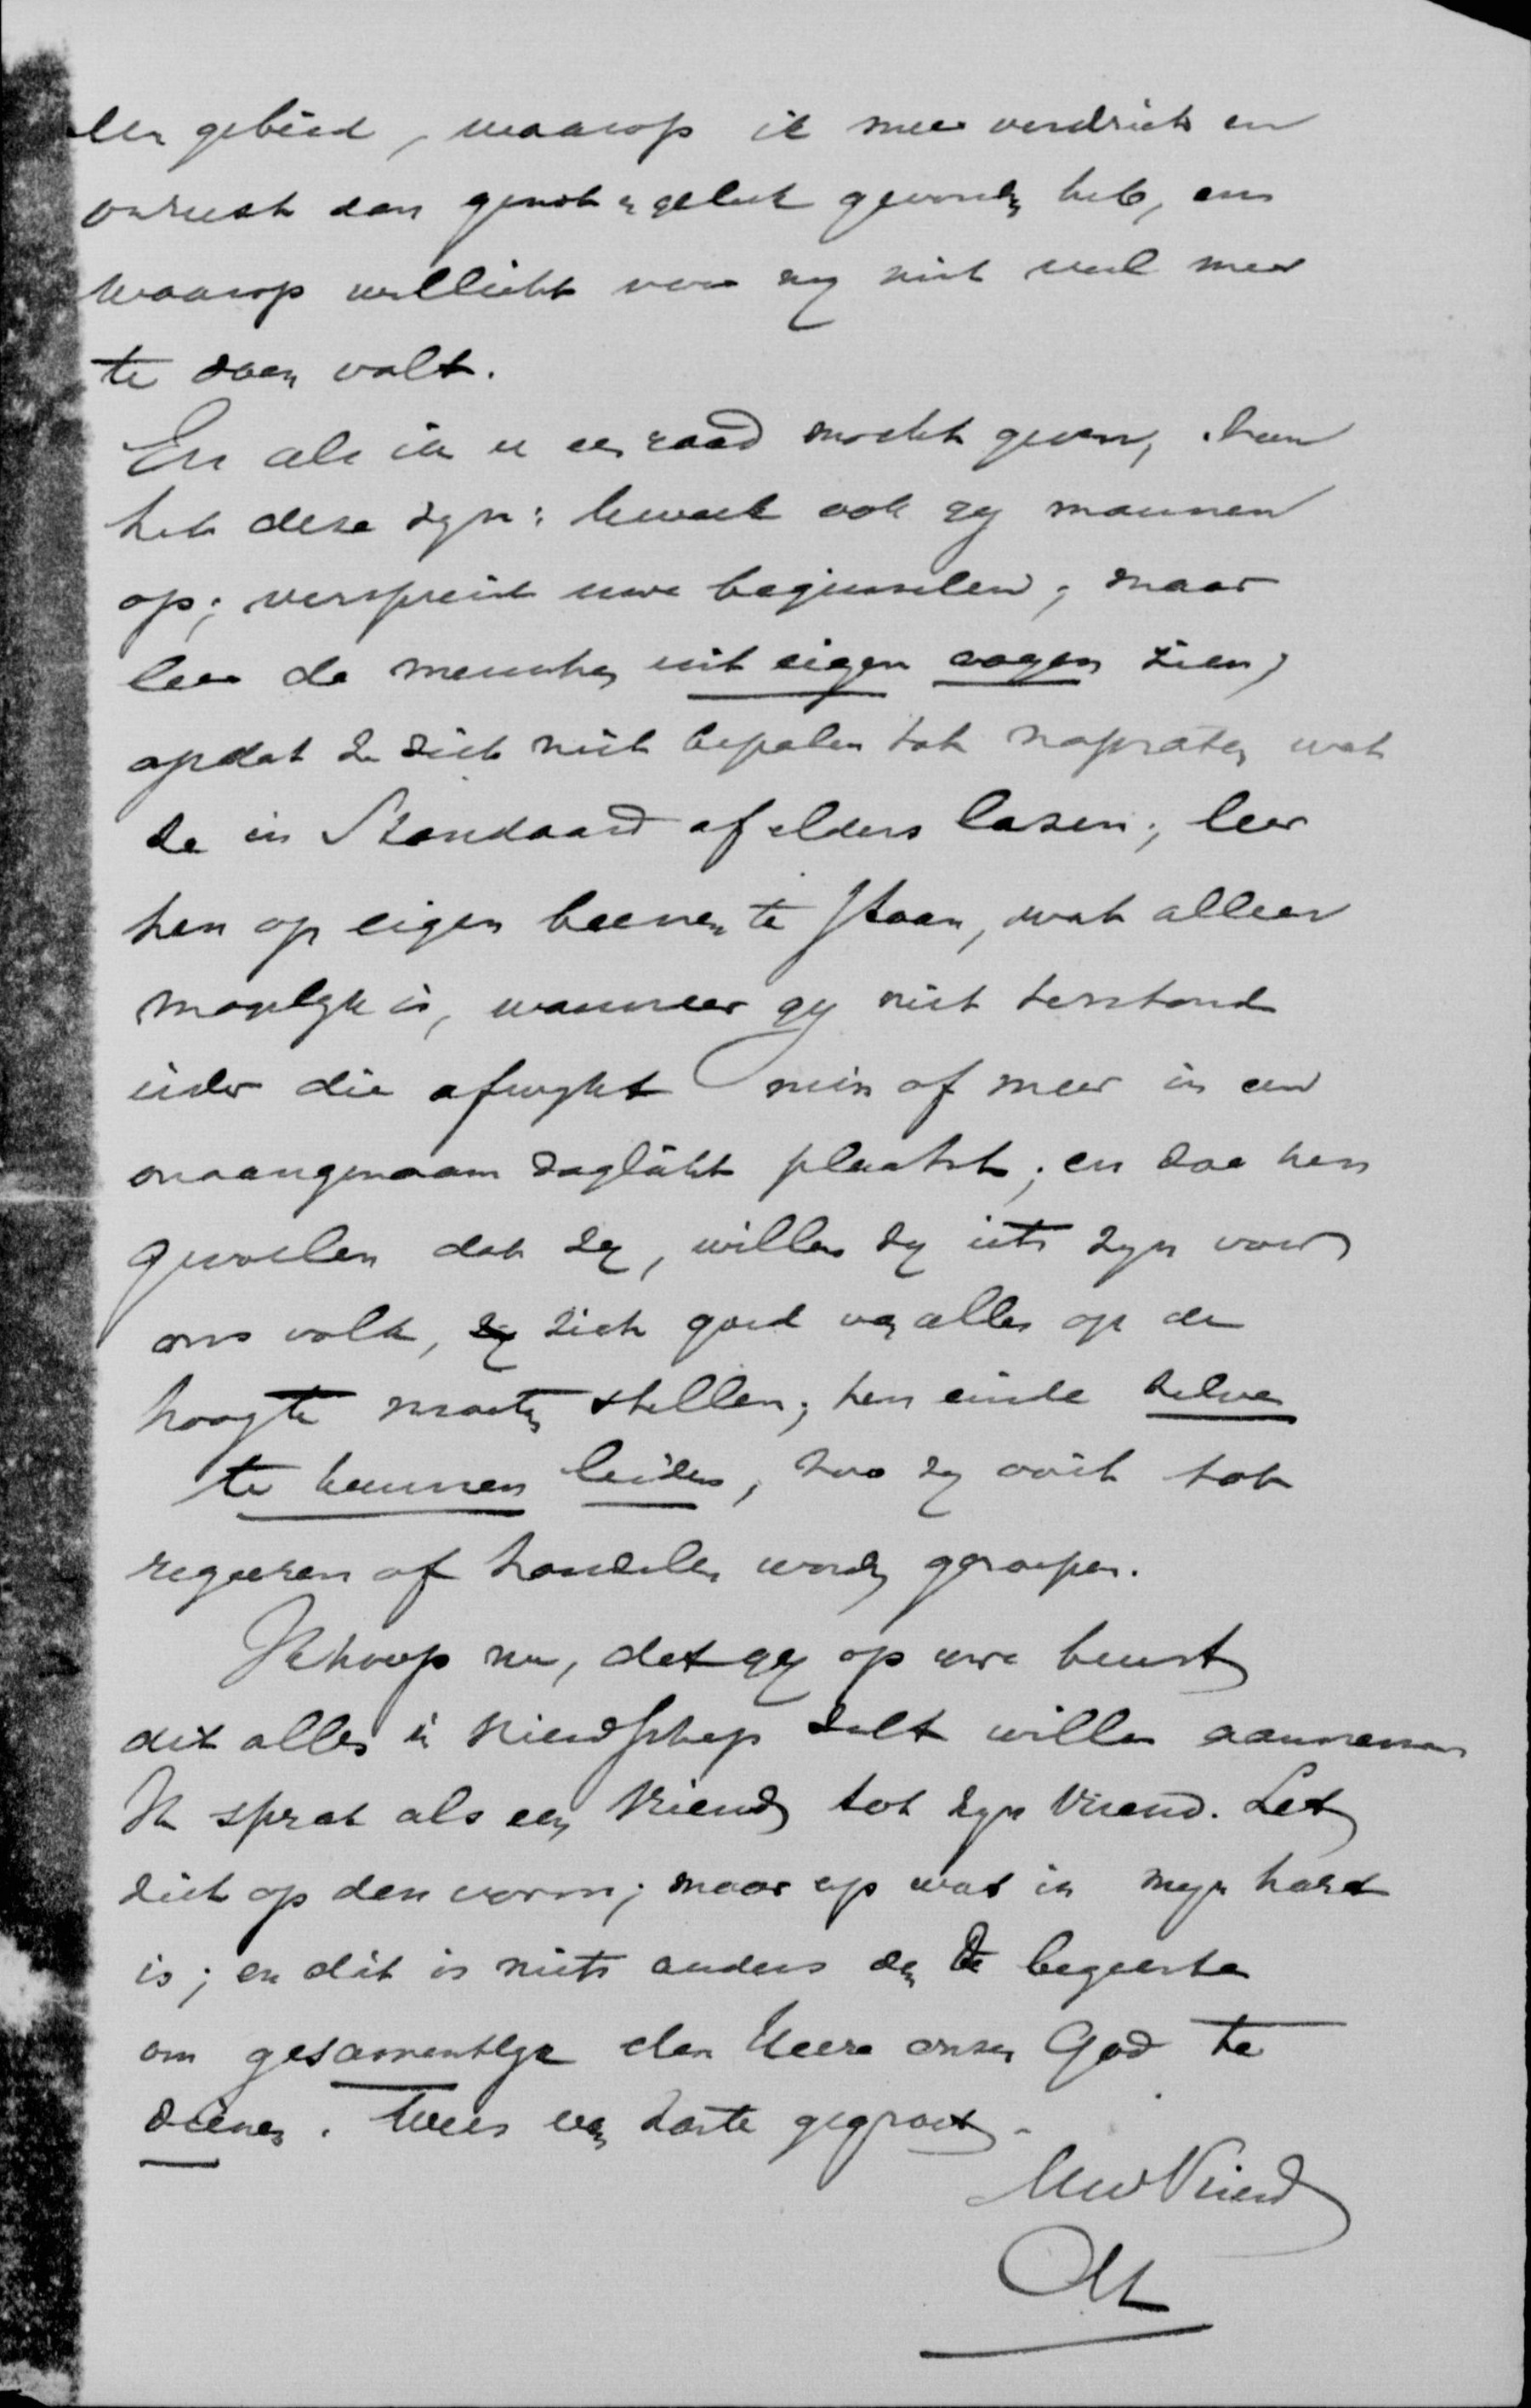 een gebied, waarop ik meer verdriet en
onrust dan genot en geluk gevonden heb, en
waarop wellicht voor my niet veel meer
te doen valt.
En als ik u een raad mocht geven, kan
het deze zyn: kweek ook gy mannen
op; verspreid uwe beginselen; maar
leer de menschen uit eigen oogen zien;
opdat ze zich niet bepalen tot napraten wat
ze in Standaard of elders lazen; leer
hen op eigen beenen te staan, wat alleen
mogelyk is, wanneer gy niet terstond
ieder die afwykt min of meer in een
onaangenaam daglicht plaatst; en doe hen
gevoelen dat zy, willen zy iets zyn voor
ons volk, zy zich goed van alles op de
hoogte moeten stellen; ten einde zelve
te kunnen leiden, zoo zy ooit tot
regeeren of handelen worden geroepen.
Ik hoop nu, dat gy op uwe beurt
dit alles in vriendschap zult willen aannemen
Ik sprak als een vriend tot zyn vriend. Let
niet op den vorm; maar op wat in myn hart
is; en dit is niets anders dan de begeerte
om gezamentlyk den Heere onzen God te
dienen. Wees van harte gegroet.
Uw Vriend